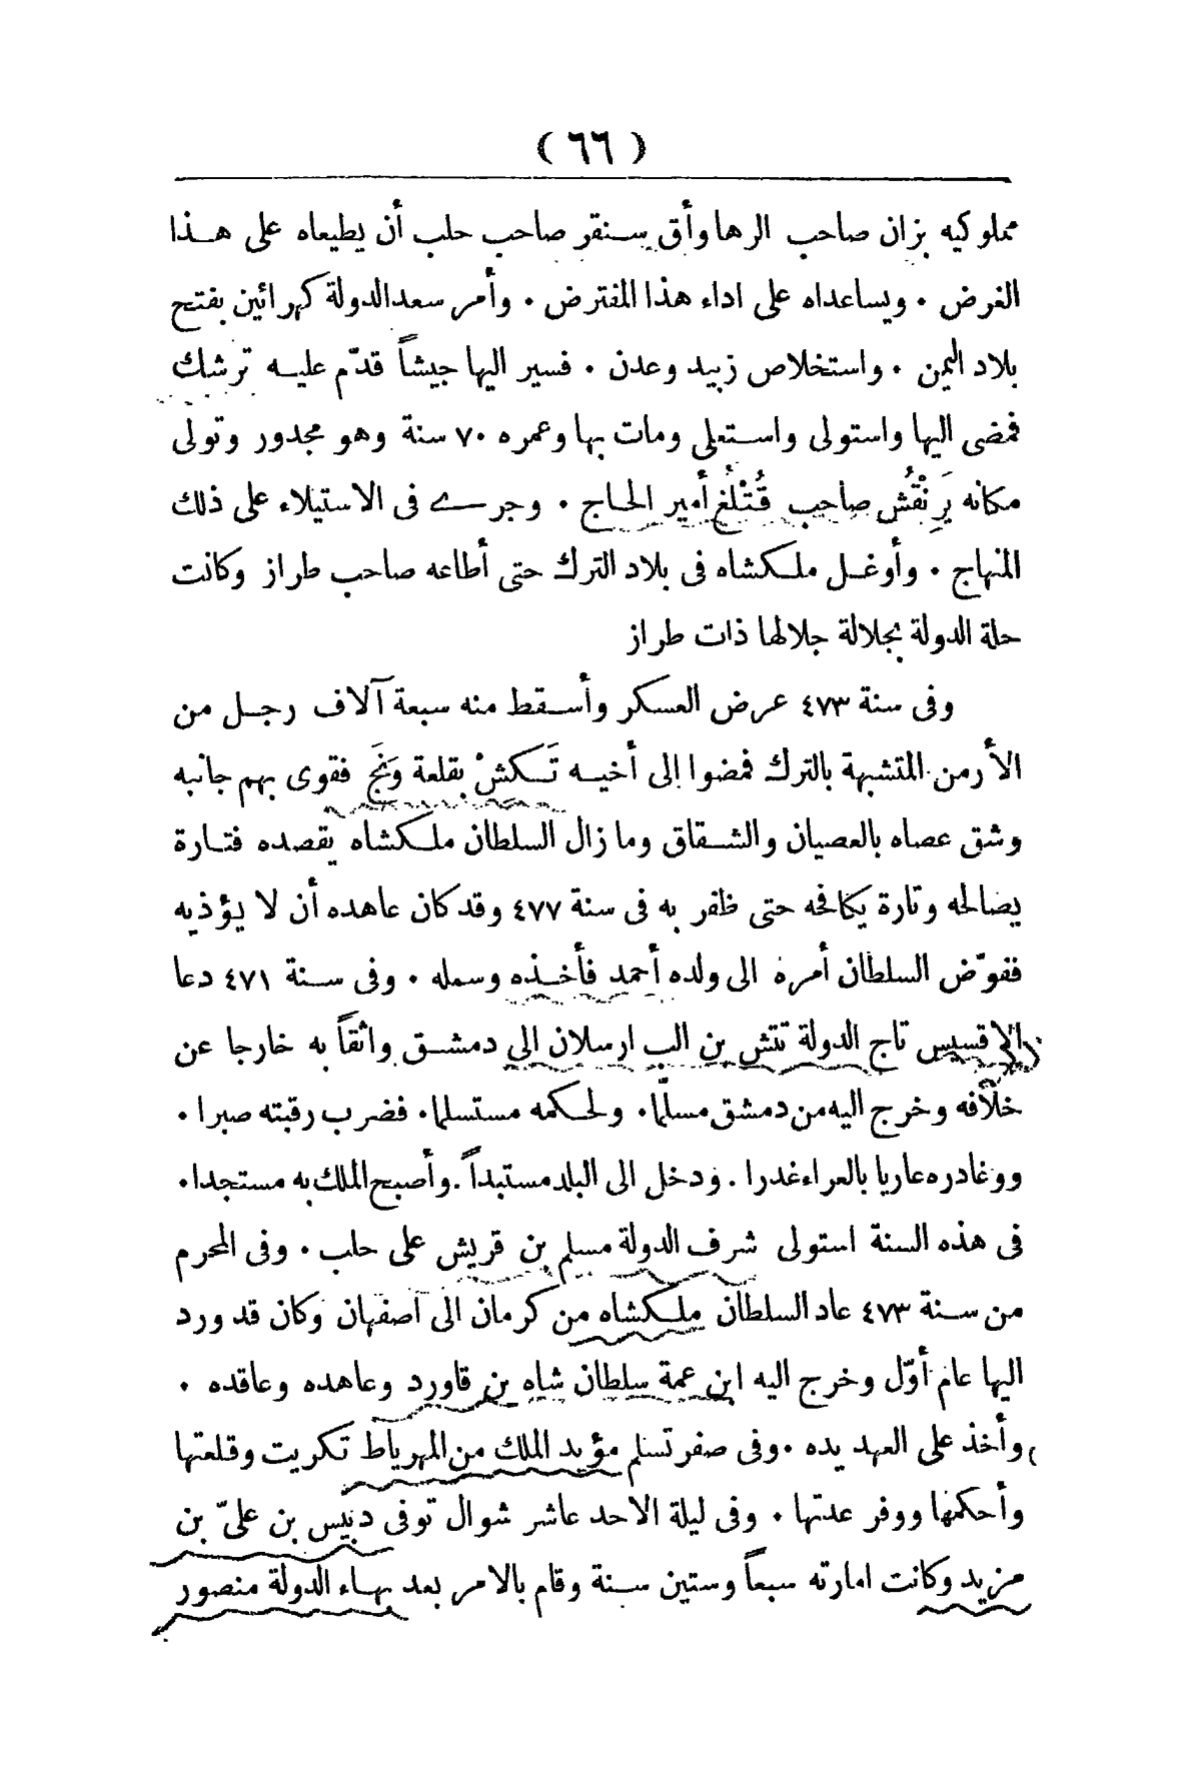 ( ٦٦ )
مملوكيه بزان صاحب الرها وأق سنقر صاحب حلب أن يطيعاه على هذا
الغرض . ويساعداه على اداء هذا المفترض . وأمر سعد الدولة كهرائين بفتح
بلاد اليمن . واستخلاص زبيد وعدن . فسير اليها جيشاً قدّم عليه ترشك
فمضى اليها واستولى واستعلى ومات بها وعمره ٧٠ سنة وهو مجدور وتولى
مكانه يَرِنْقُش صاحب قُتْلُغ أمير الحاج . وجرے فى الاستيلاء على ذلك
المنهاج . وأوغل ملكشاه فى بلاد الترك حتى أطاعه صاحب طراز وكانت
حلة الدولة بجلالة جلالها ذات طراز
وفى سنة ٤٧٣ عرض العسكر وأسقط منه سبعة آلاف رجل من
الأرمن المتشبهة بالترك فمضوا إلى أخيه تَكشْ بقلعة وَنَج فقوى بهم جانبه
وشق عصاه بالعصيان والشقاق وما زال السلطان ملكشاه يقصده فتارة
يصالحه وتارة يكافحه حتى ظفر به فى سنة ٤٧٧ وقد كان عاهده أن لا يؤذيه
ففوّض السلطان أمره الى ولده أحمد فأخذه وسمله . وفى سنة ٤٧١ دعا
الاقسيس تاج الدولة تتش بن الب ارسلان الى دمشق واثقاً به خارجا عن
خلافه وخرج اليه من دمشق مسلّما . ولحكمه مستسلما . فضرب رقبته صبرا .
ووغادره عاريا بالعراء غدرا . ودخل الى البلد مستبداً . وأصبح الملك به مستجدا .
فى هذه السنة استولى شرف الدولة مسلم بن قريش على حلب . وفى المحرم
من سنة ٤٧٣ عاد السلطان ملكشاه من كرمان الى اصفهان وكان قد ورد
اليها عام أوّل وخرج اليه ابن عمة سلطان شاه بن قاورد وعاهده وعاقده .
وأخذ على العهد يده . وفى صفر تسلم مؤيد الملك من المهرياط تكريت وقلعتها
وأحكمها ووفر عدتها . وفى ليلة الاحد عاشر شوال توفى دبيس بن علىّ بن
مزيد وكانت امارته سبعاً وستين سنة وقام بالامر بعد بهاء الدولة منصور